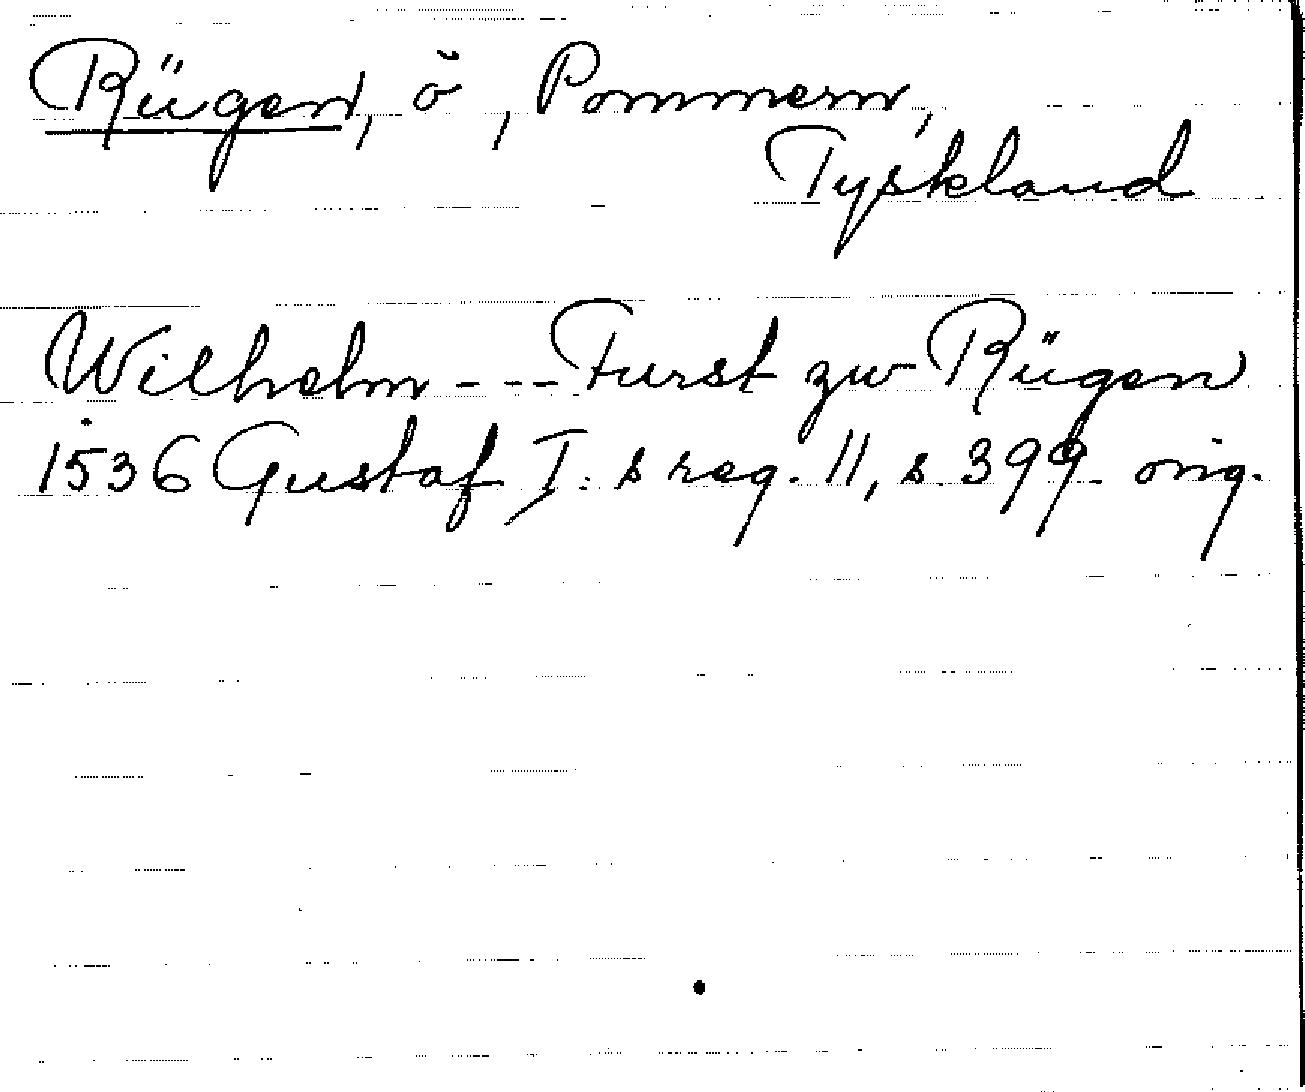 Rügen, ö, Pommern,
Tyskland
Wilhelm --- Furst zw Rügen
1536 Gustaf I:s reg. 11, s 399. orig.